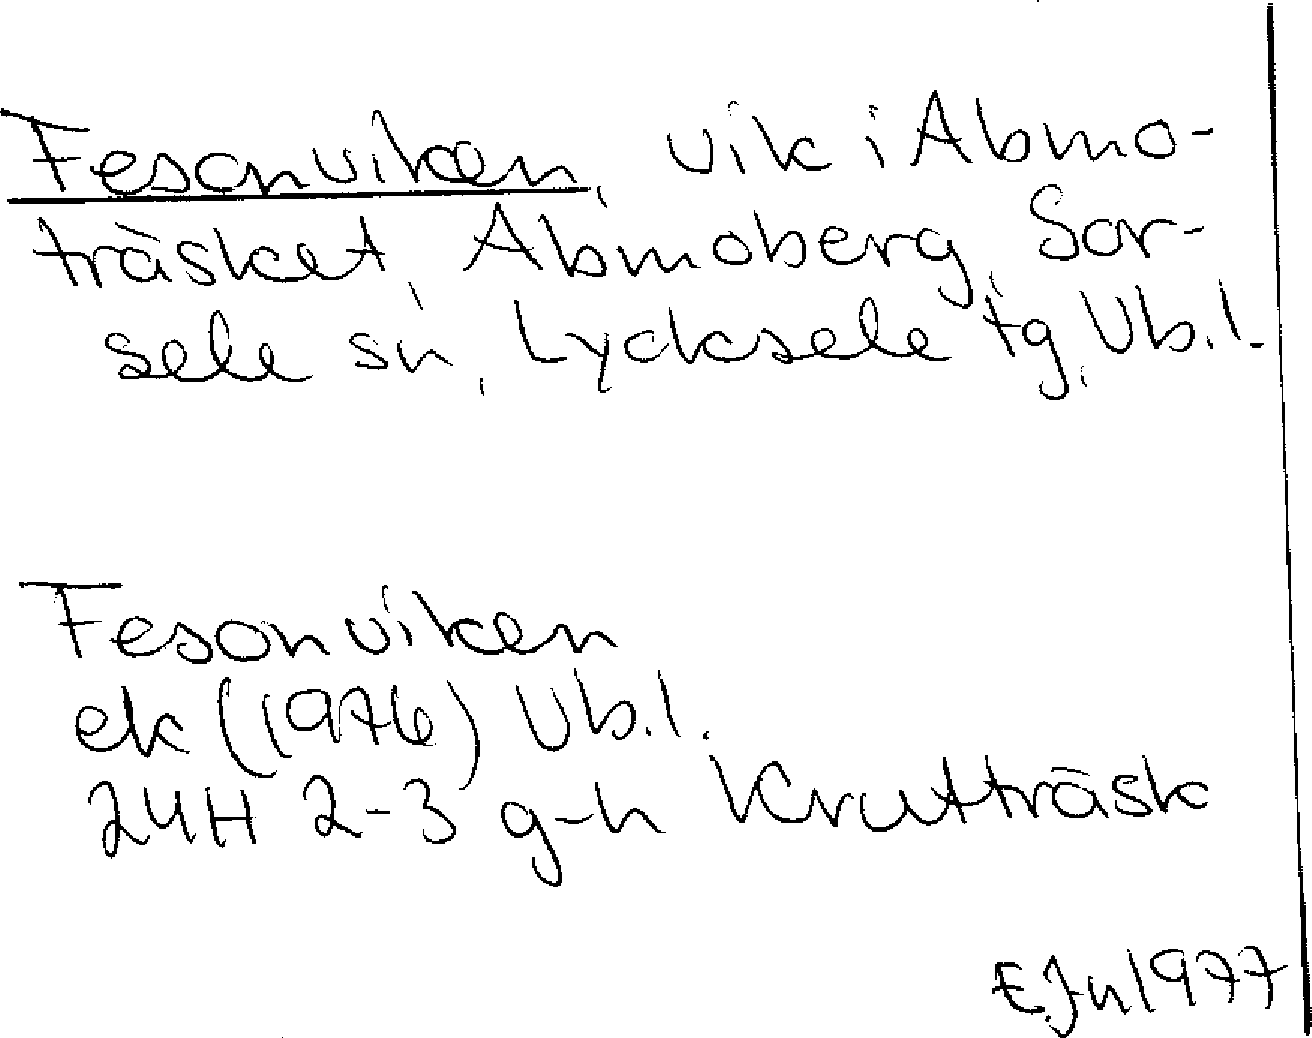 Fesonviken, vik i Abmo-
träsket, Abmoberg, Sor-
sele sn, Lycksele tg, Vb.l.
Fesonviken
ek (1976) Vb.l.
24H 2-3 g-h Krutträsk
E.Jn 1977